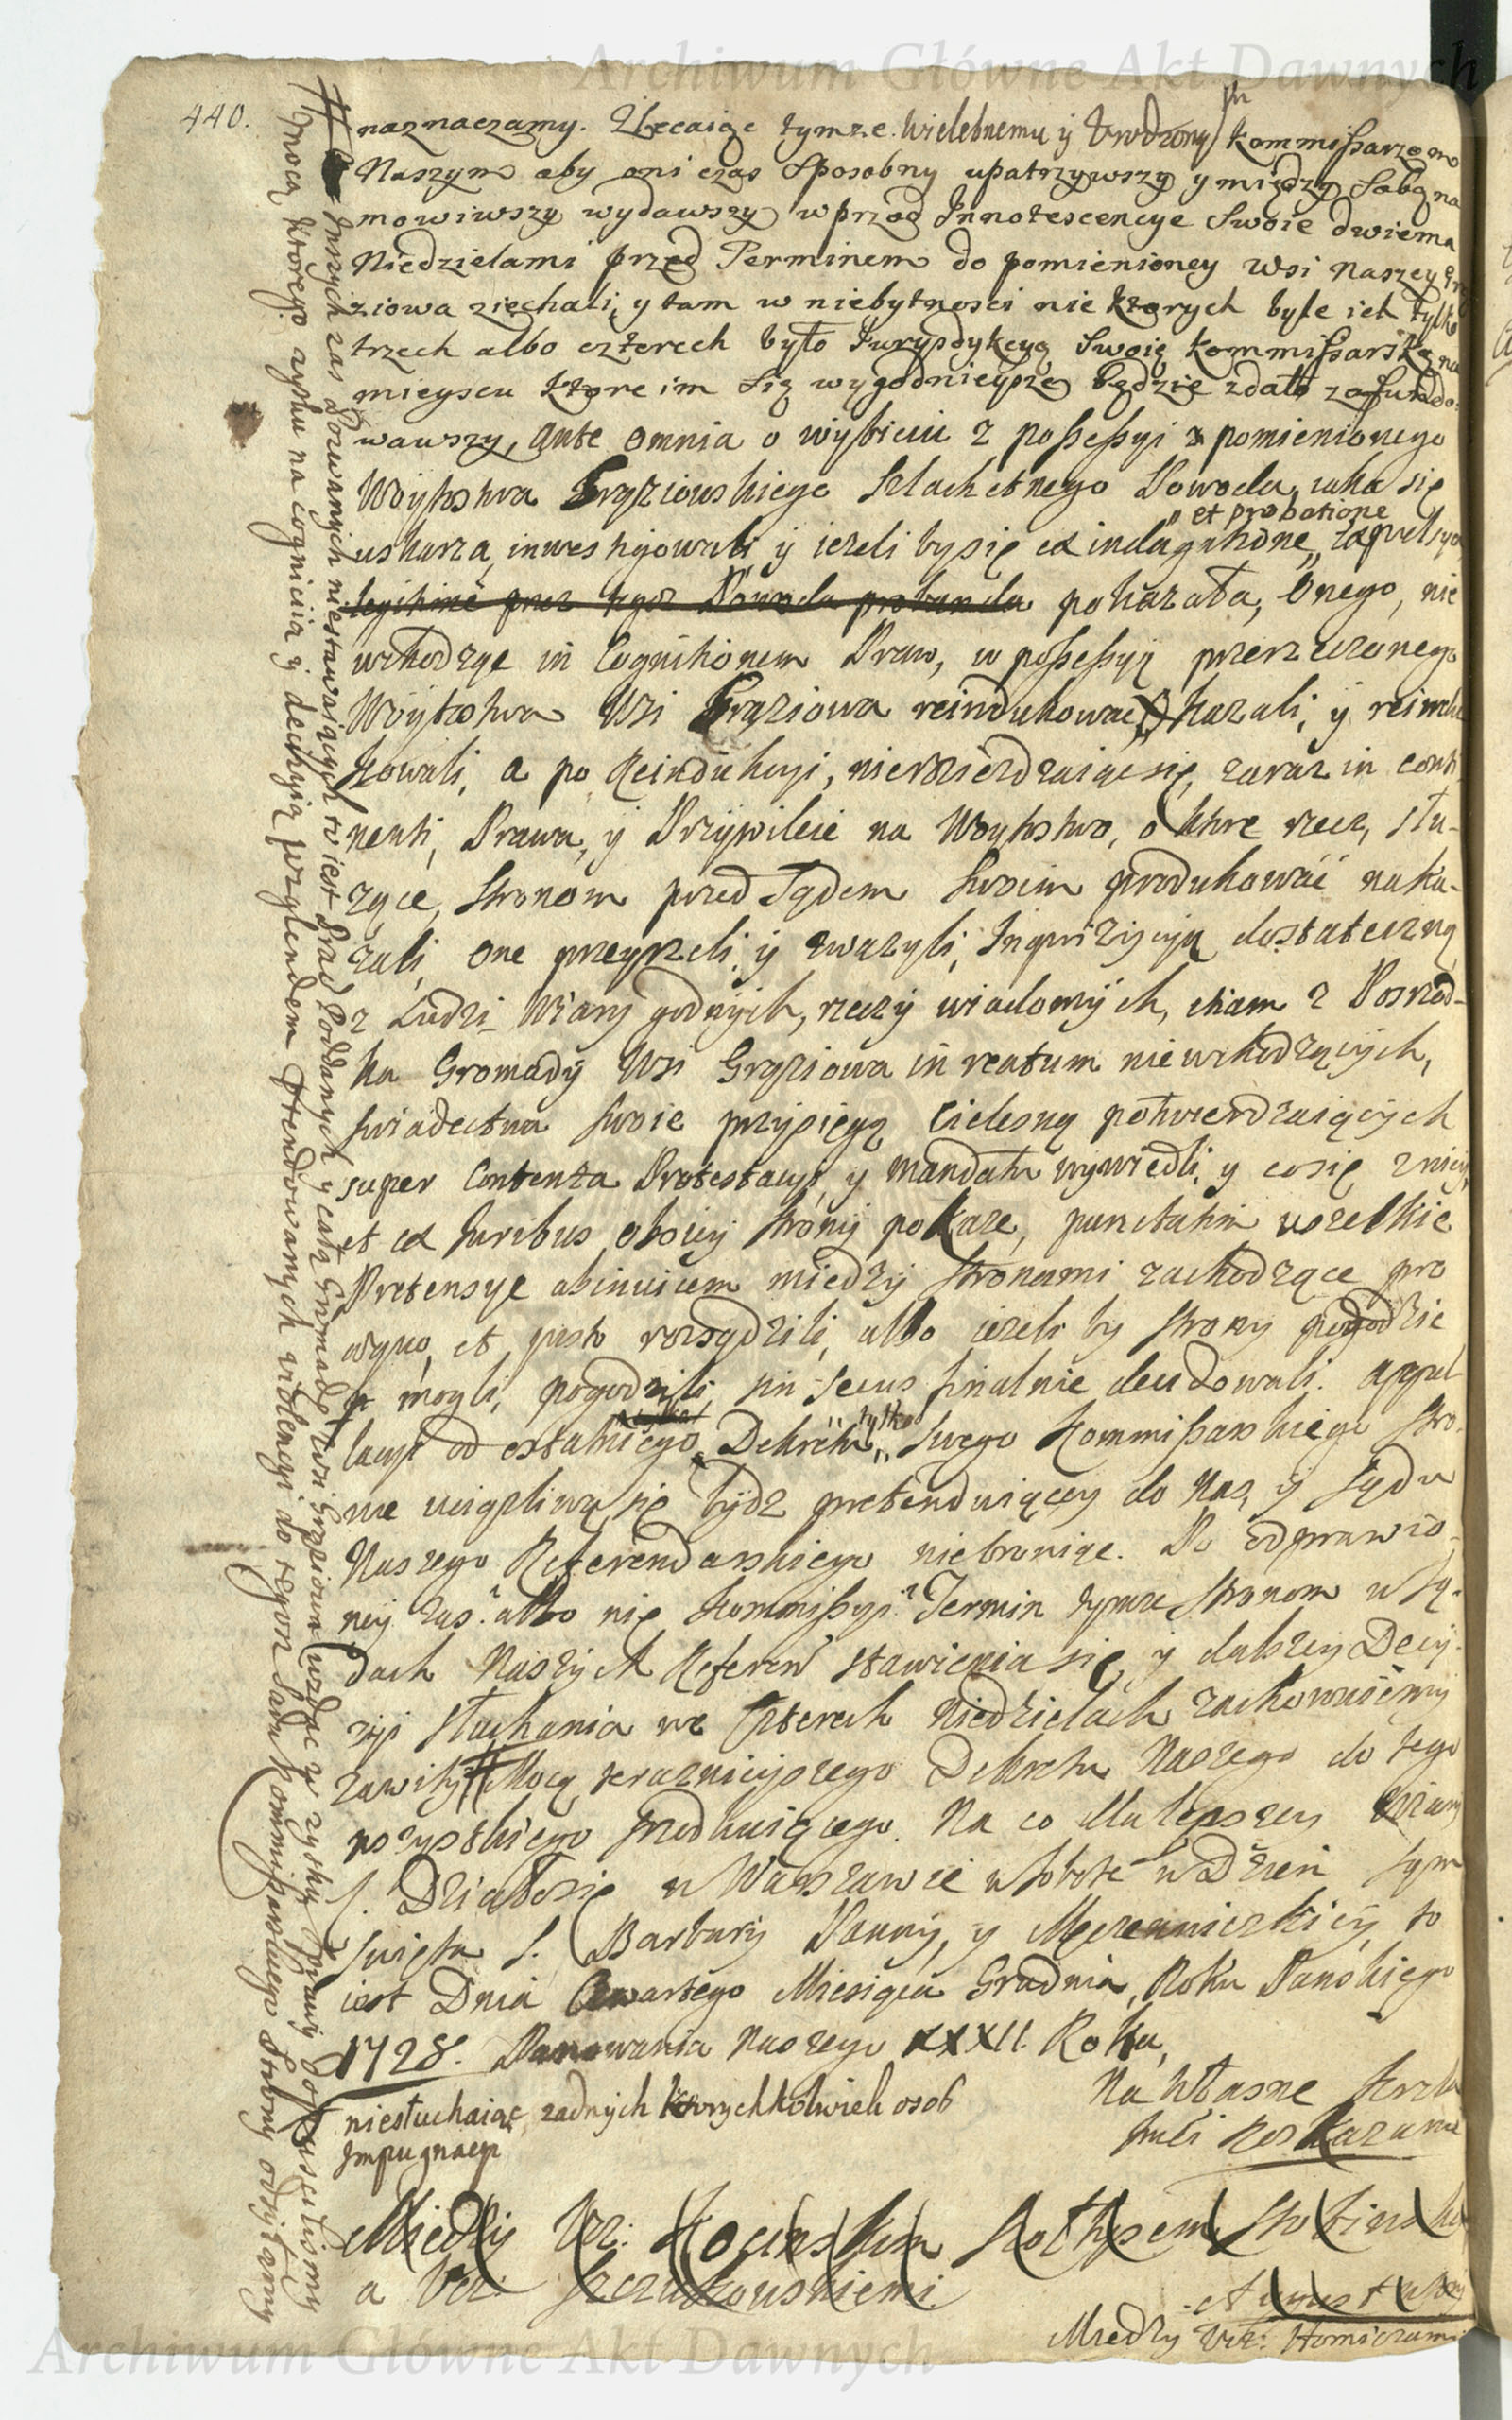 Archiwum Główne Akt Dawnych
440.
naznaczamy. Zlecaiąc tymze. Wielebnemu ÿ Urodzony/m kommißarzom
Naszym aby oni czas sposobny upatrzywszy y między sobą na
mowiwszy wydawszy wprzod Innotescencye swoie dwiema
Niedzielami przed Terminem do pomienioney wsi Naszey Grą
ziowa ziechali, y tam w niebytnosci nie ktorych byle ich tylko
trzech albo czterech było Iurysdykcyą Swoię kommißarską na
mieyscu ktore im się wygodnieysze będzie zdało zafundo-
wawszy, ante omnia o wybiciu z poßeßyi z pomienionego
Woytostwa Grąziowskiego Szlachetnego Powoda, iako się
uskarza, inwestygowali, ÿ ieżeli by się ex indagatione „et probatione„
legitime per Powoda probanda pokazała, Onego, nie
wchodząc in Cognitionem Praw, w poßeßyą przerzeczonego
Woytostwa Wsi Grąziowa reindukować kazali, ÿ reindu
kowali, a po Reindukcyi, nierozieżdzaiąc się, zaraz in conti
nenti, Prawa, ÿ Przywileie na Woytostwo, o ktore rzecz, słu-
zące, stronom przed Sądem swoim produkować naka-
zali, one przeyrzeli, ÿ zwazyli, Inqwizycyą dostateczną
z Ludzi Wiary godnych, rzeczy wiadomych, etiam z Posrzod-
ka Gromady Wsi Grąziowa in reatum niewchodzących,
swiadectwa swoie przysięgą cielesną potwierdzaiących
super Contenta Protestacyi, y mandatu wywiedli, y co się z niey,
et ex Iuribus oboiey strony pokaze, punctatim wszelkie
Pretensye abinvicem między stronami zachodzące pro
æquo, et justo rozsądzili, albo ieżeli by strony pogodzic
mogli, pogodzili, sin secus finalnie decidowali. Appel
lacyi od ostatniego Dekretu „tylko„ swego Kommißarskiego stro-
nie uciązliwą się bydz pretenduiącey do Nas, ÿ Sądu
Naszego Referendarskiego niebroniąc. Po odprawio-
ney zas albo nie Kommißyi Termin tymze stronom w Są-
dach Naszych Referen stawienia się, y dalszey Decy-
zyi słuchania we czterech Niedzielach zachowuiemy
zawity # Mocą teraznieyszego Dekretu Naszego do tego
wszystkiego
Na co dla lepszey wiary
f. Działo się w Warszawie w Sobotę w Dzień
święta S. Barbary Panny, y Męczenniczki, to
iest Dnia Czwartego Miesiąca Grudnia, Roku Panskiego
1728. Panowania Naszego XXXII. Roku,
niesłuchaiąc zadnych ktorychkolwiek osob
Impugnacyi
Na Własne
Roskazanie
Między Ur:
a Ur:
Między Ur:
# Inszych zas Pozwanych niestawaiących to iest Prac Poddanych y całą Gromadę wsi Grąziowa wzdac w zysku Sprawy dopuscilismy
mocą ktorego zysku na cognicią y decyzyą względem Pretendowanych violencyi do tegoz Sądu Kommißarskiego Strony odsyłamy
Archiwum Główne Akt Dawnych